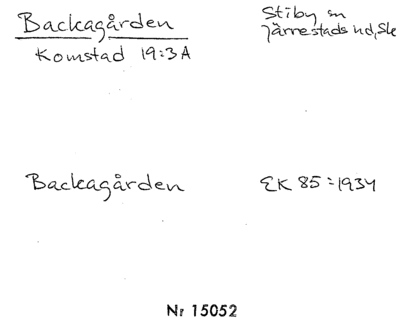 Backagården
Komstad 19:3A
Stiby sn
Järrestads hd, Sk
Backagården
EK 85:1934
Nr 15052